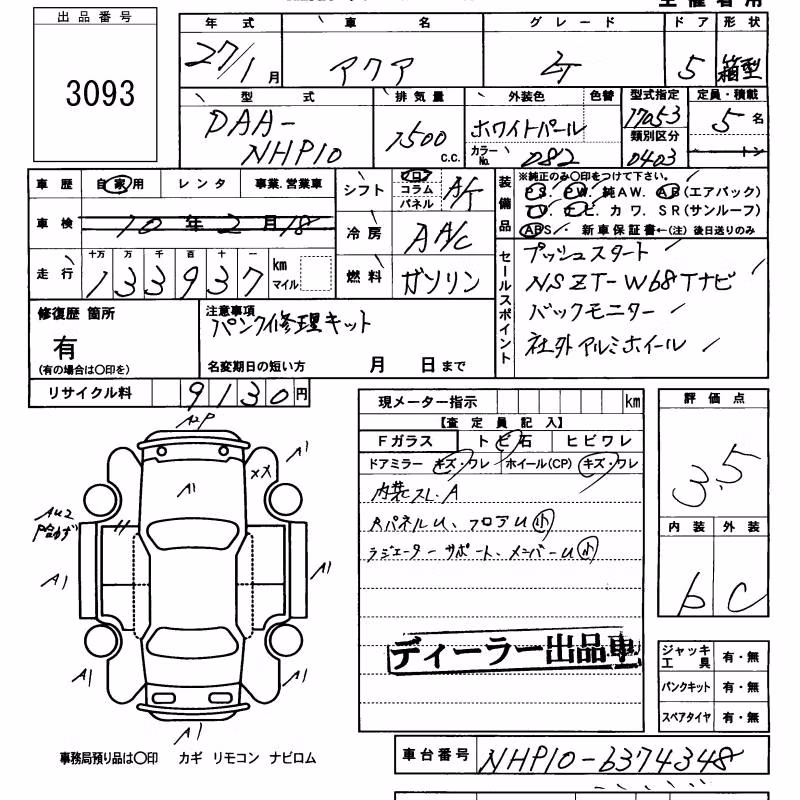 出品番号
3093
年式 車名 グレード ドア 形状
27/1月 アクア 5 箱型
型式 排気量 外装色 色替 型式指定 定員・積載
DAA-NHP10 1500 C.C. ホワイトパール 17053 5名
カラーNo. 082 類別区分 0403 トン
車歴 自家用 レンタ 事業.営業車
シフト フロア コラム パネル A/T
装備品 ※純正のみ○印をつけて下さい。
P S. P W. 純A W. A B(エアバック)
T V. ナ ビ. カ ワ. S R(サンルーフ)
ABS. 新車保証書←(注) 後日送りのみ
車検 10年2月18
冷房 AA/C
走行 十万 万 千 百 十 一
133937 km マイル
燃料 ガソリン
セールスポイント
プッシュスタート
NSZT-W68Tナビ
バックモニター
社外アルミホイール
修復歴 箇所
有
(有の場合は○印を)
注意事項
パンク修理キット
名変期日の短い方 月 日まで
リサイクル料 9130円
現メーター指示 km
【査定員記入】
Fガラス トビ石 ヒビワレ
ドアミラー キズ・ワレ ホイール(CP) キズ・ワレ
内装スレ.A
RパネルU、フロアU小
ラジエーターサポート、メンバーU小
ディーラー出品車
評価点
3.5
内装 外装
b C
ジャッキ工具 有・無
パンクキット 有・無
スペアタイヤ 有・無
A2P
A1
XX
A1
AU2
A1
A1
A1
A1
A1
事務局預り品は○印 カギ リモコン ナビロム
車台番号 NHP10-6374348